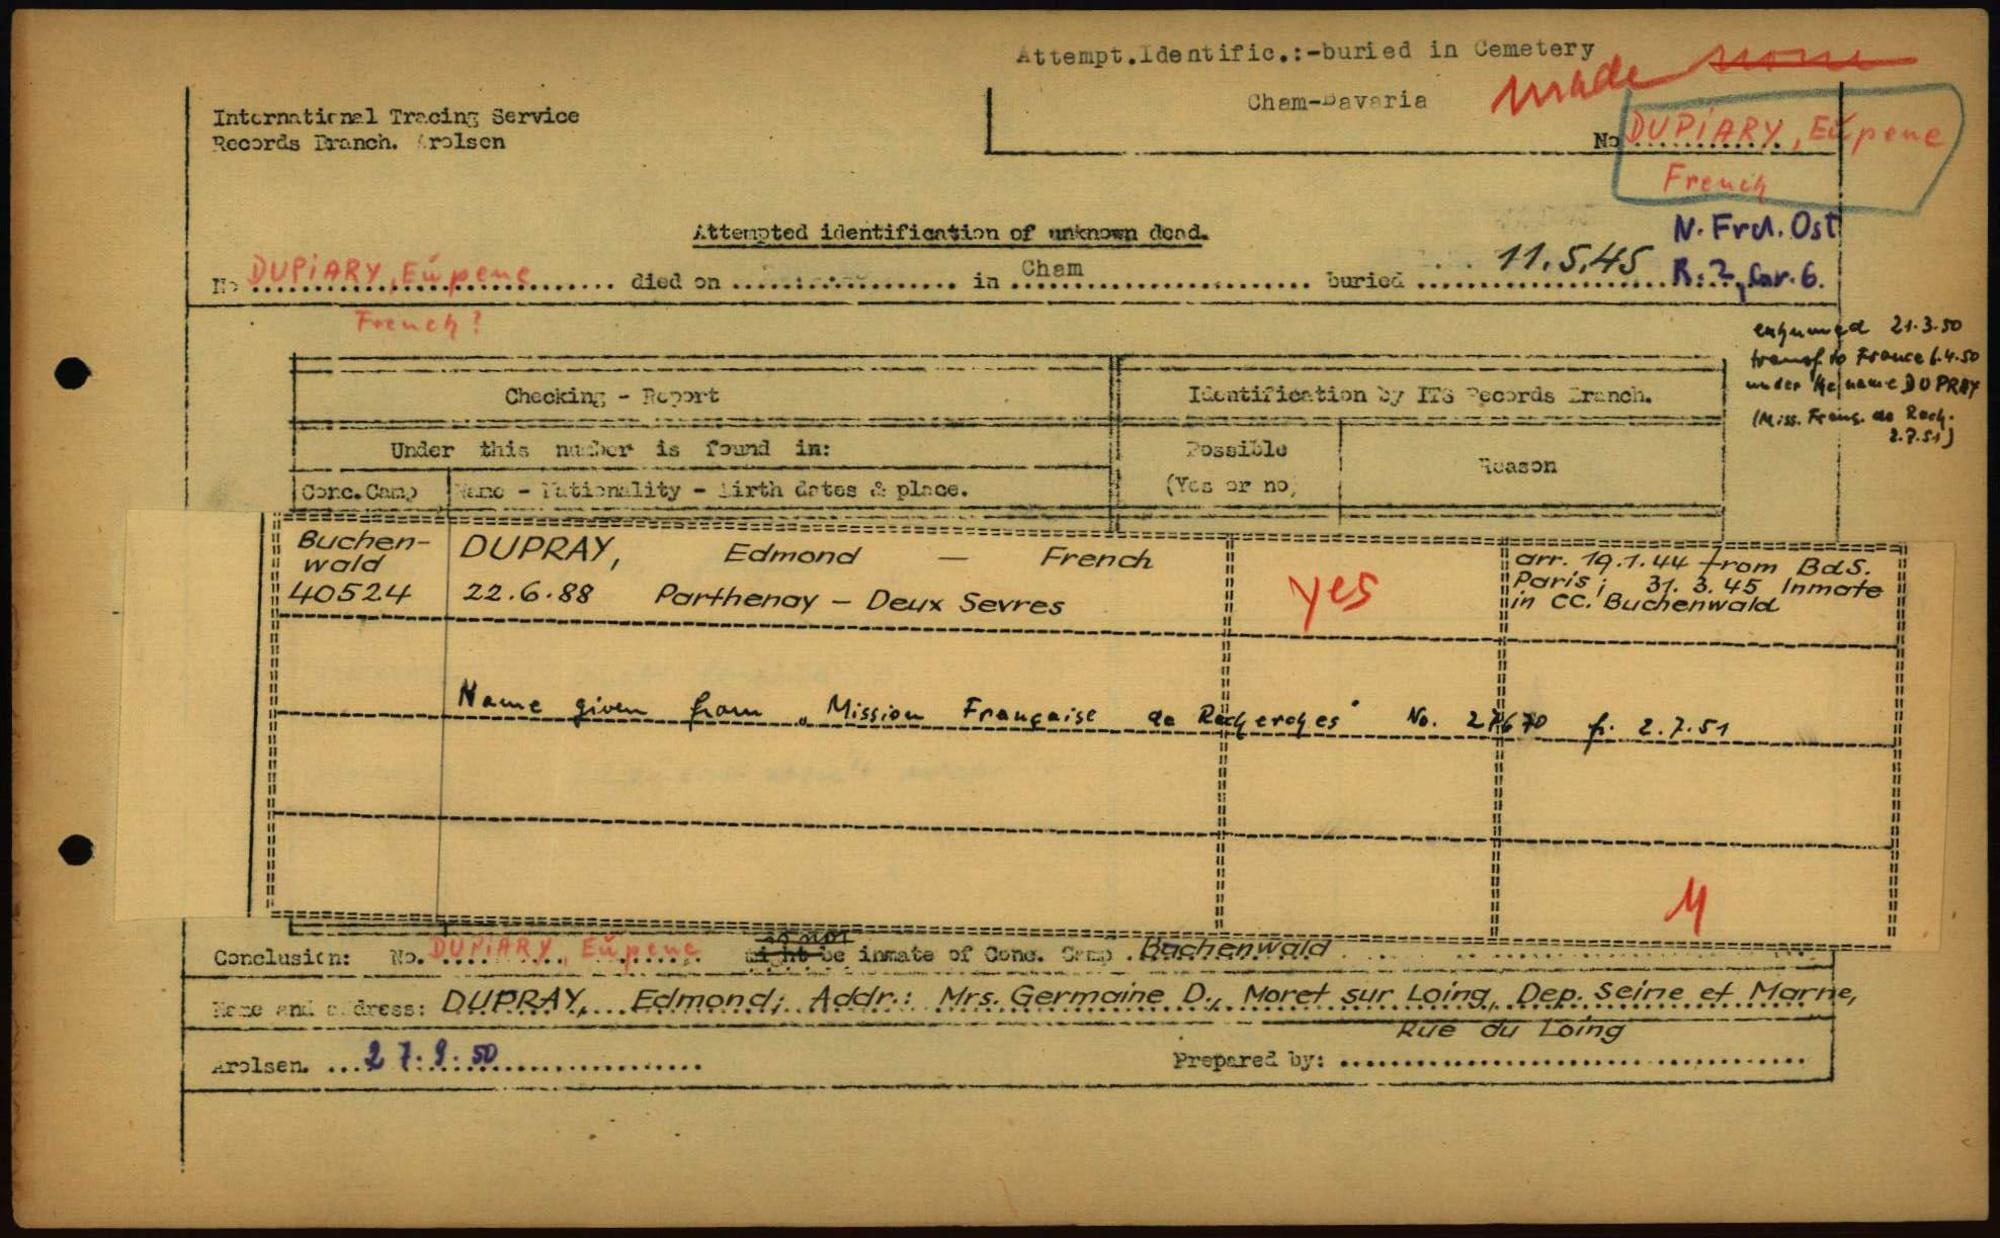 Attempt.Identific.:-buried in Cemetery
Cham-Bavaria
made none
International Tracing Service
Records Branch. Arolsen
No DUPiARY, Eŭpene
French
Attempted identification of unknown dead.
N. Frd. Ost
No DUPiARY, Eŭpene died on ............ in Cham buried 11.5.45 R:2, Gr. 6.
French?
exhumed 21.3.50
transf. to France 6.4.50
under the name DUPRAY
(Miss. Franç. de Rech.
2.7.51)
Checking - Report
Identification by ITS Records Branch.
Under this number is found in:
Possible
(Yes or no)
Reason
Conc.Camp
Name - Nationality - Birth dates & place.
Buchen-
wald
40524
DUPRAY, Edmond — French
22.6.88 Parthenay – Deux Sevres
yes
arr. 19.1.44 from BdS.
Paris; 31.3.45 Inmate
in CC. Buchenwald
Name given from „Mission Française de Recherches" No. 27670 fr. 2.7.51
Conclusion: No. DUPiARY, Eŭpene might be inmate of Conc. Camp Buchenwald
Name and address: DUPRAY, Edmond; Addr.: Mrs. Germaine D., Moret sur Loing, Dep. Seine et Marne,
Rue du Loing
Arolsen. 27.9.50
Prepared by: